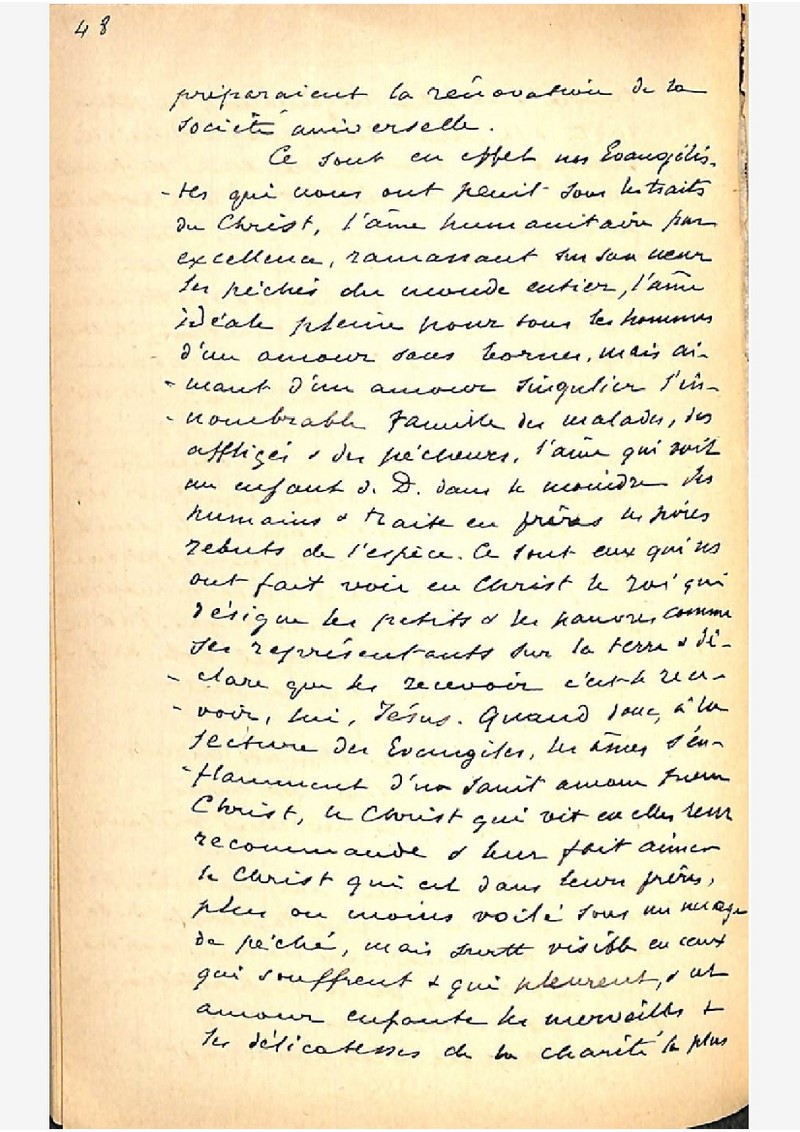 48
préparaient la rénovation de la
société universelle.
Ce sont en effet nos Evangélis-
-tes qui nous ont peint sous les traits
du Christ, l'âme humanitaire par
excellence, ramassant sur son cœur
les péchés du monde entier, l'âme
idéale pleine pour tous les hommes
d'un amour sans bornes, mais ai-
-mant d'un amour singulier l'in-
-nombrable famille des malades, des
affligés & des pécheurs, l'âme qui voit
un enfant de D. dans le moindre des
humains & traite en frères les pires
rebuts de l'espèce. Ce sont eux qui ns
ont fait voir en Christ le roi qui
désigne les petits & les pauvres comme
ses représentants sur la terre & dé-
-clare que les recevoir c'est le rece-
-voir, lui, Jésus. Quand donc, à la
lecture des Evangiles, les âmes s'en-
-flamment d'un saint amour pour
Christ, le Christ qui vit en elles leur
recommande & leur fait aimer
le Christ qui est dans leurs frères,
plus ou moins voilé sous un nuage
de péché, mais surtt visible en ceux
qui souffrent & qui pleurent, & cet
amour enfante les merveilles &
les délicatesses de la charité la plus